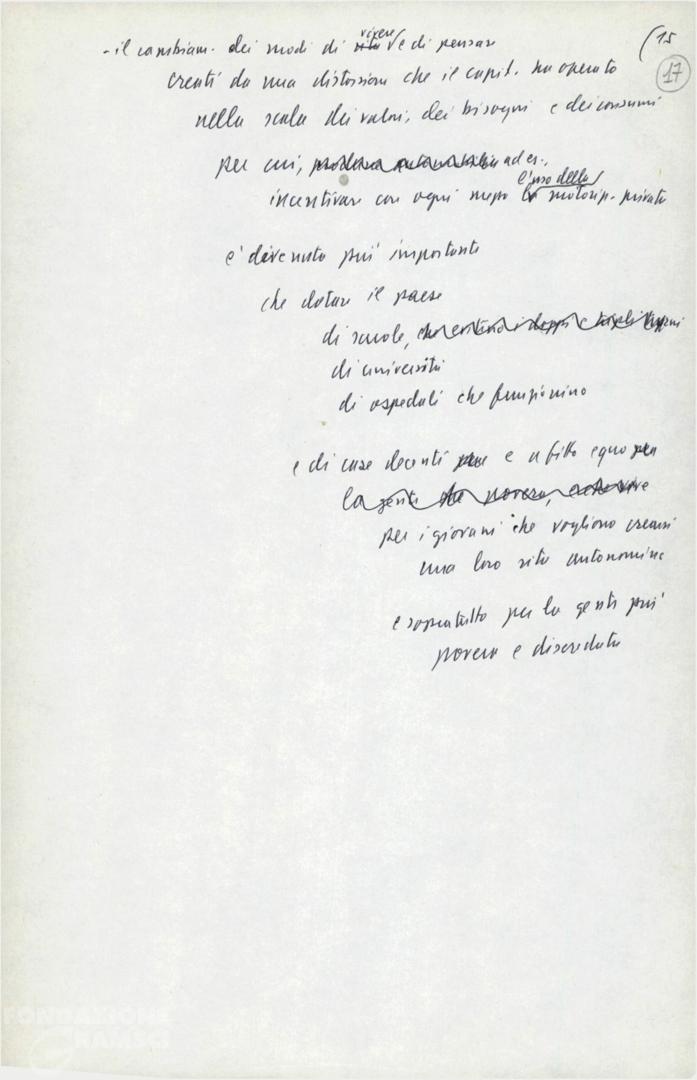 (15
17
- il cambiam. dei modi di vita vivere e di pensare
creati da una distorsione che il capit. ha operato
nella scala dei valori, dei bisogni e dei consumi
per cui, ad es.,
incentivare con ogni mezzo la l'uso della motorizz. privata
è divenuto più importante
che dotare il paese
di scuole,
di università
di ospedali che funzionino
e di case decenti e a fitto equo
la gente povera,
per i giovani che vogliono crearsi
una loro vita autonoma
e sopratutto per la gente più
povera e diseredata
FONDAZIONE
GRAMSCI